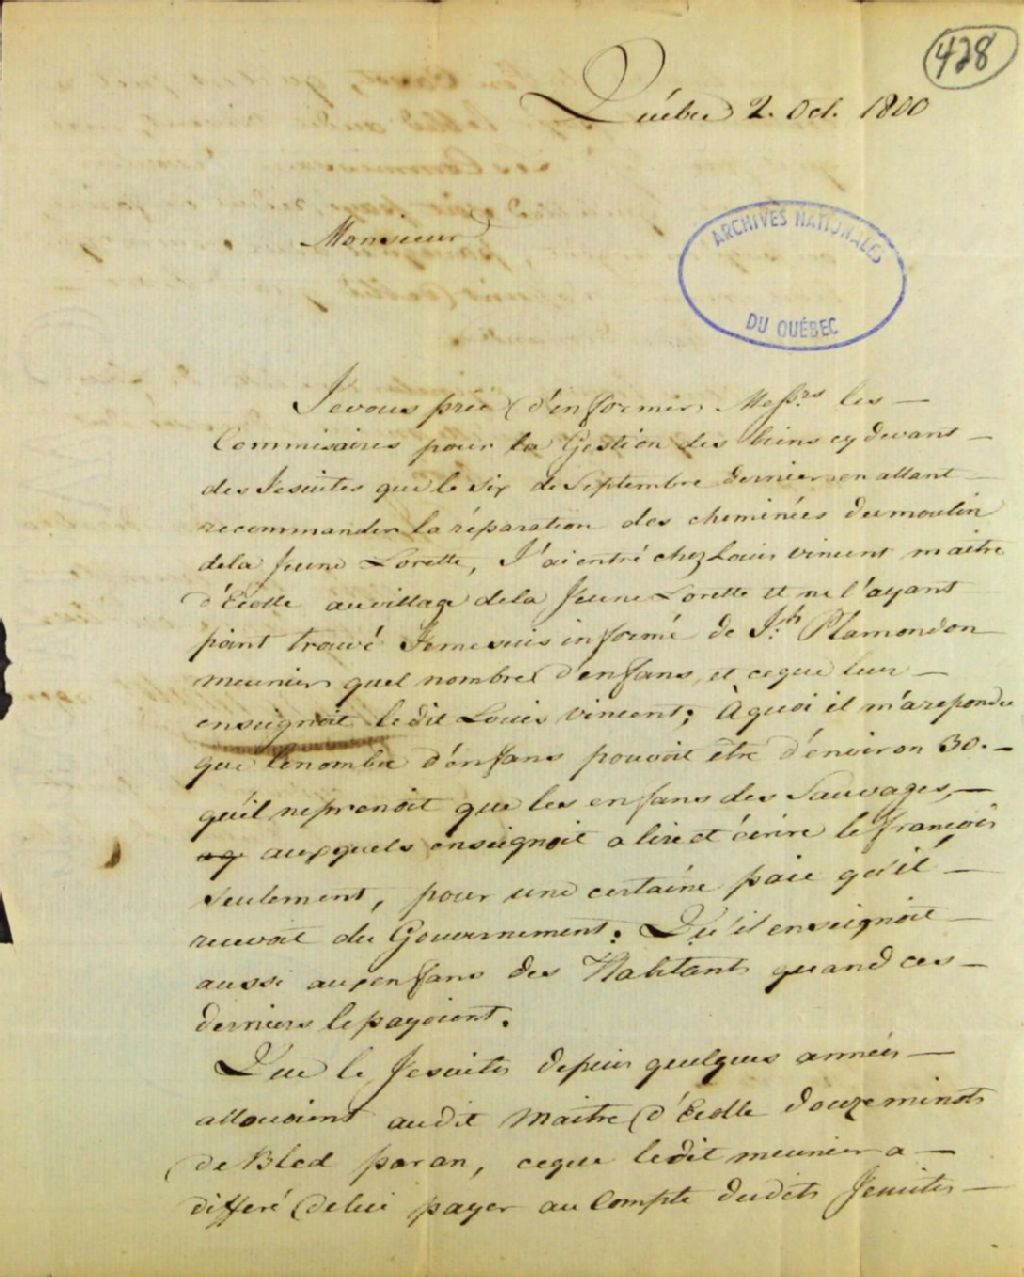 428
Québec 2. Oct. 1800
ARCHIVES NATIONALES
DU QUÉBEC
Monsieur
Je vous prie d'informer Messrs les
Commisaires pour la Gestion des biens cy devant
des Jesuites que le Six de Septembre dernier en allant
recommander la réparation des cheminées du moulin
de la Jeune Lorette, J'ai entré chez Louis Vincent maitre
d'Ecolle au village de la Jeune Lorette et ne l'ayant
point trouvé Je me suis informé de Jph Plamondon
meunier quel nombre d'enfans, et ce que leur
enseignoit le dit Louis Vincent; À quoi il m'a repondu
que le nombre d'enfans pouvoit être d'environ 30.
qu'il ne prenoit que les enfans des Sauvages,
auxquels enseignoit a lire et écrire le françois
seulement, pour une certaine paie qu'il
recevoit du Gouvernement. Qu'il enseignoit
aussi aux enfans des Habitants quand ces
derniers le payoient.
Que le Jesuites depuis quelques années
allouoient au dit Maitre d'Ecolle douze minots
de Bled par an, ce que le dit meunier a
differé de lui payer au Compte des dits Jesuites